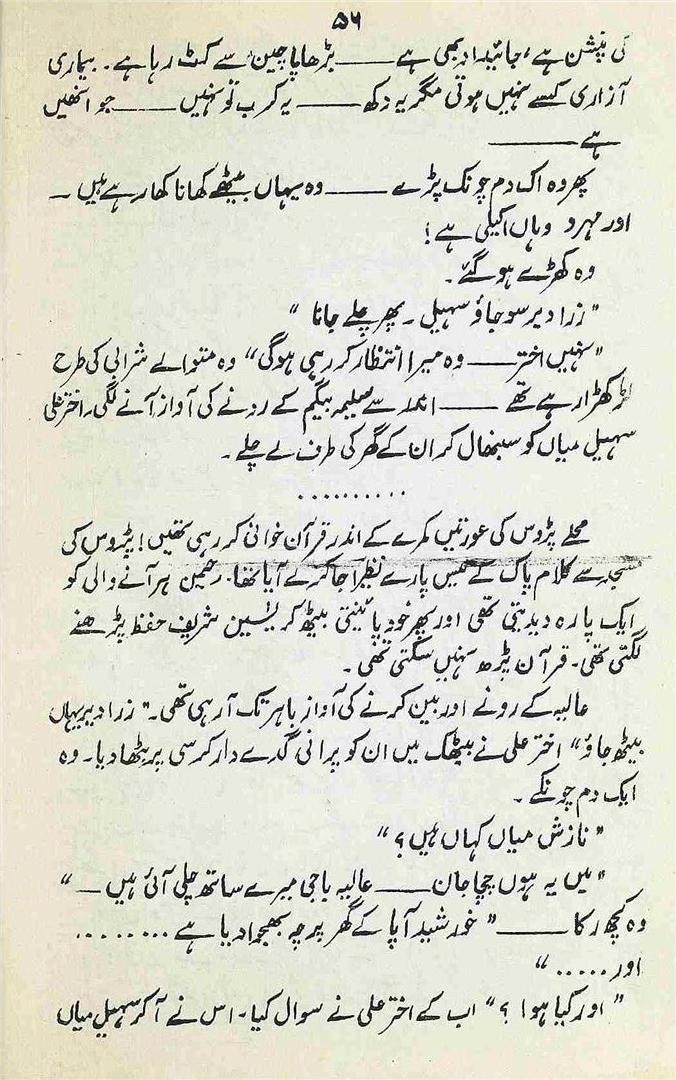 ۵۶
کی پنشن ہے، جائیداد بھی ہے ـــــ بڑھاپا چین سے کٹ رہا ہے۔ بیماری
آزاری کسے نہیں ہوتی مگر یہ دکھ ـــــ یہ کرب تو نہیں ـــــ جو انھیں
ہے ـــــ
پھر وہ اک دم چونک پڑے ـــــ وہ یہاں بیٹھے کھانا کھا رہے ہیں ۔
اور مہرو وہاں اکیلی ہے !
وہ کھڑے ہو گئے ۔
" زرا دیر سو جاؤ سہیل ۔ پھر چلے جانا "
" نہیں اختر ـــــ وہ میرا انتظار کر رہی ہوگی " وہ متوالے شرابی کی طرح
لڑکھڑا رہے تھے ـــــ اندر سے سلیمہ بیگم کے رونے کی آواز آنے لگی۔ اختر علی
سہیل میاں کو سنبھال کر ان کے گھر کی طرف لے چلے ۔
..........
محلے پڑوس کی عورتیں کمرے کے اندر قرآن خوانی کر رہی تھیں! پڑوس کی
مسجد سے کلام پاک کے تیس پارے نظیرا جا کرلے آیا تھا۔ رحیمن ہر آنے والی کو
ایک پارہ دیدیتی تھی اور پھر خود پائینتی بیٹھ کر یٰسین شریف حفظ پڑھنے
لگتی تھی۔ قرآن پڑھ نہیں سکتی تھی ۔
عالیہ کے رونے اور بین کرنے کی آواز باہر تک آ رہی تھی۔ " زرا دیر یہاں
بیٹھ جاؤ " اختر علی نے بیٹھک میں ان کو پرانی گدے دار کرسی پر بٹھا دیا۔ وہ
ایک دم چونکے ۔
" نازش میاں کہاں ہیں ؟ "
" میں یہ ہوں چچا جان ـــــ عالیہ باجی میرے ساتھ چلی آئی ہیں ـــ "
وہ کچھ رکا ـــــ " خورشید آپا کے گھر پرچہ بھجوا دیا ہے ........
اور ..... "
" اور کیا ہوا ؟ " اب کے اختر علی نے سوال کیا۔ اس نے آ کر سہیل میاں